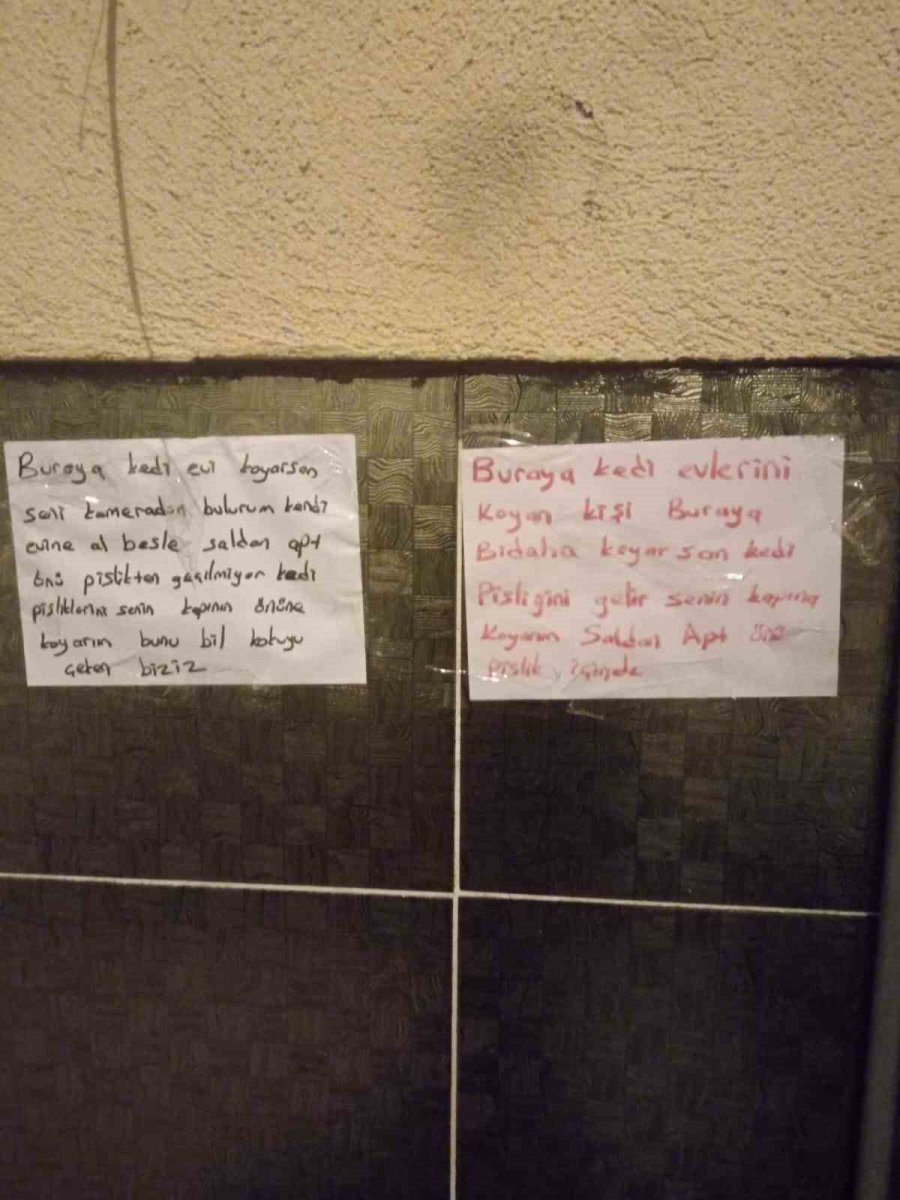 Buraya kedi evi koyarsan
seni kameradan bulurum kendi
evine al besle saldan apt
önü pislikten geçilmiyor kedi
pisliklerini senin kapının önüne
koyarım bunu bil kokuyu
çeken biziz
Buraya kedi evlerini
Koyan kişi Buraya
Bidaha koyarsan kedi
Pisliğini getir senin kapına
Koyarım Saldan Apt önü
Pislik içinde